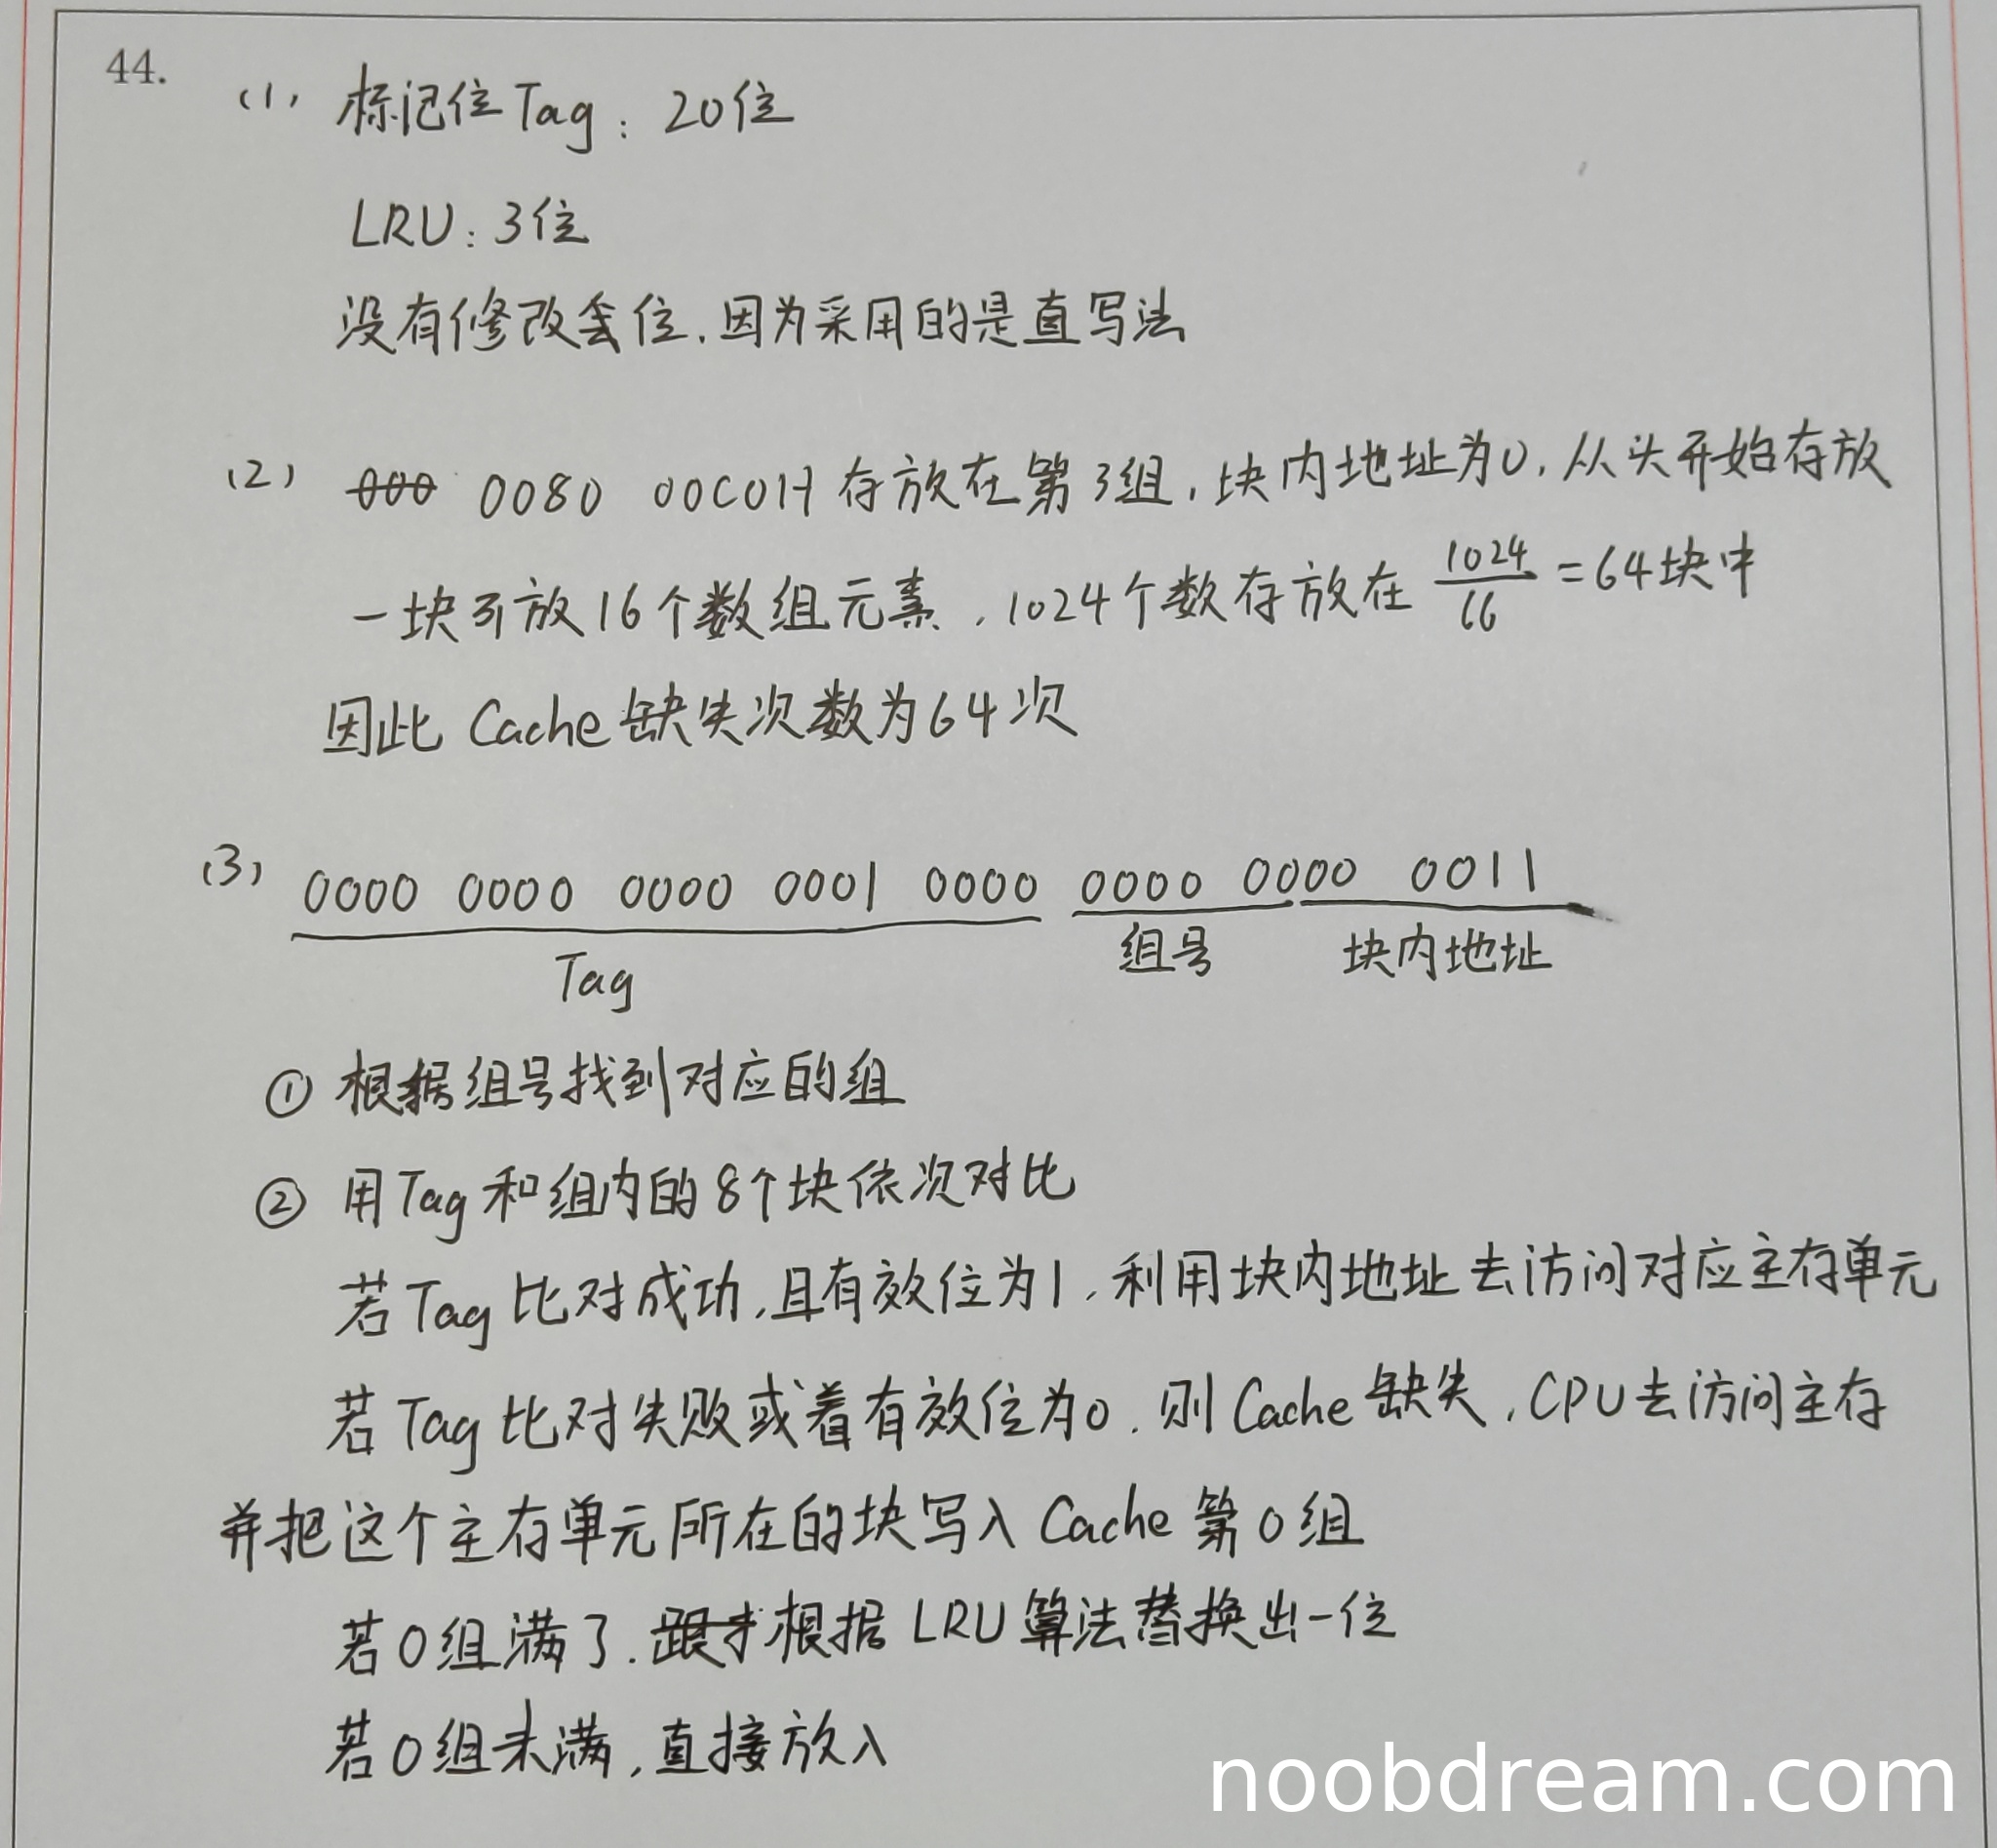 44.
(1) 标记位Tag: 20位
LRU: 3位
没有修改位.因为采用的是直写法
(2) 000 0080 00C0H存放在第3组,块内地址为0,从头开始存放
一块可放16个数组元素,1024个数存放在 1024/16 =64块中
因此 Cache缺失次数为64次
(3) 0000 0000 0000 0001 0000 0000 0000 0011
Tag 组号 块内地址
① 根据组号找到对应的组
② 用Tag和组内的8个块依次对比
若Tag比对成功,且有效位为1,利用块内地址去访问对应主存单元
若Tag比对失败或着有效位为0.则Cache缺失,CPU去访问主存
并把这个主存单元所在的块写入Cache第0组
若0组满了.根据LRU算法替换出一位
若0组未满,直接放入
noobdream.com